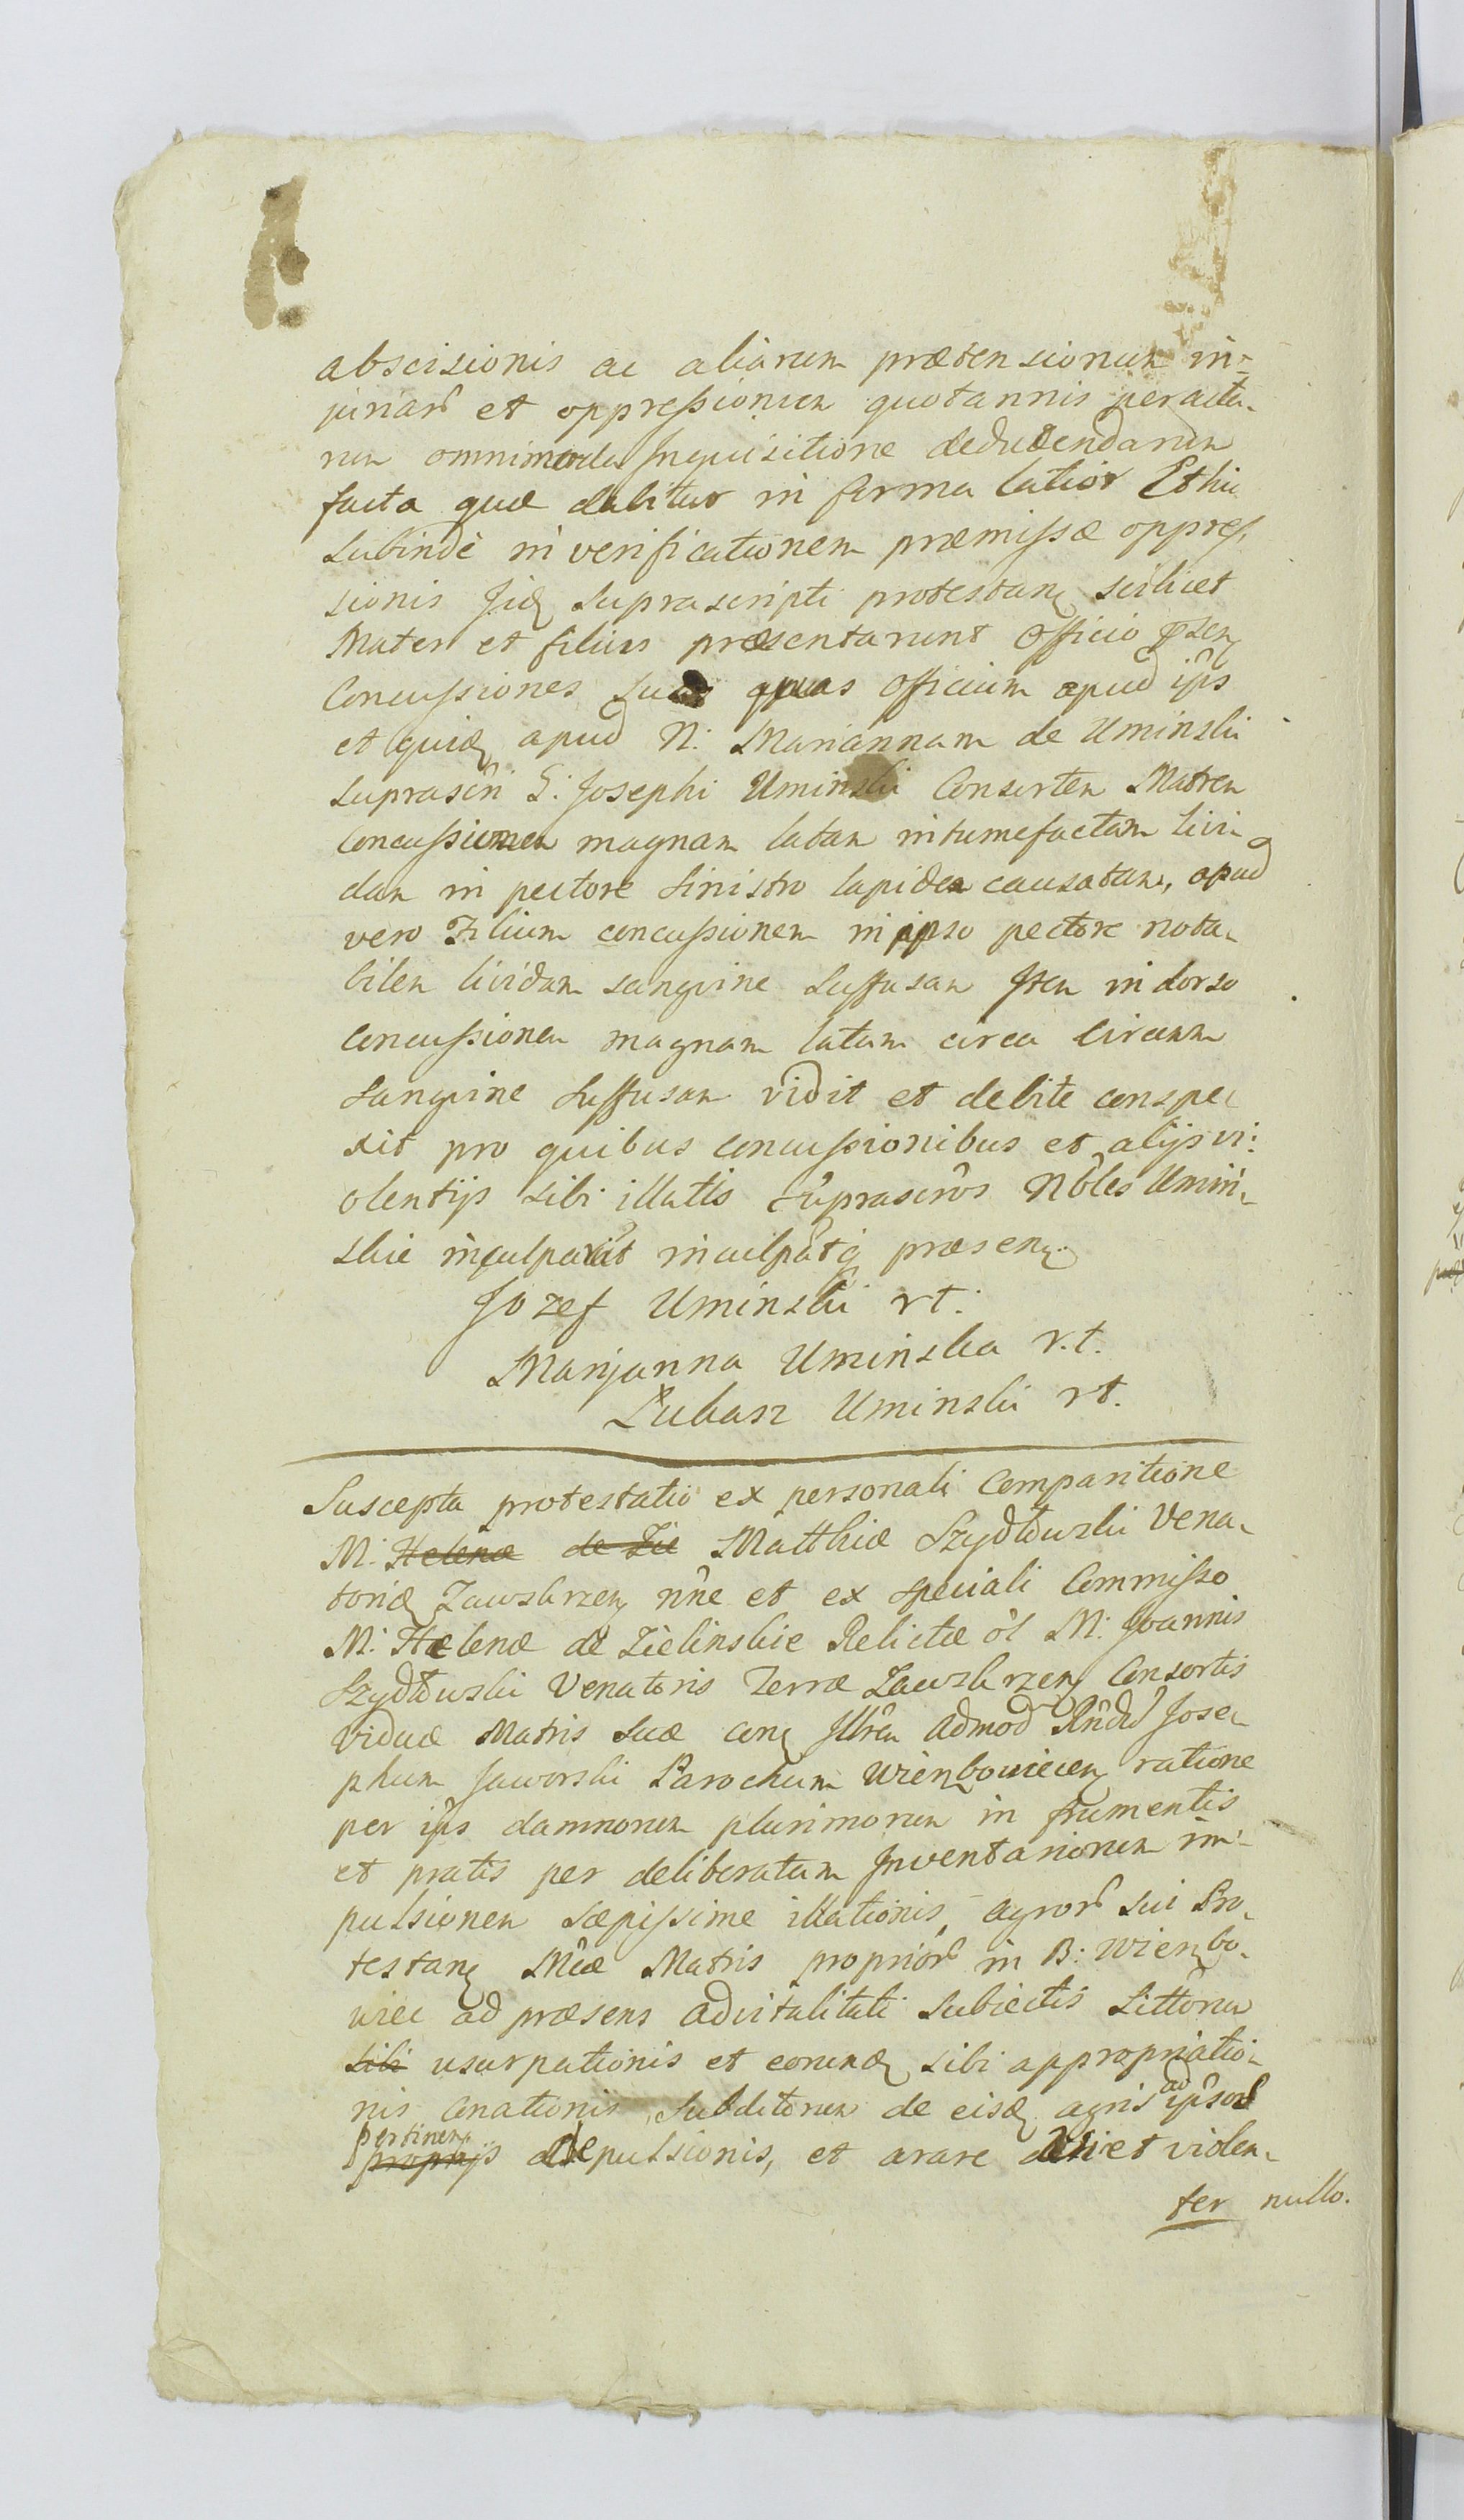 abscisionis ac aliarum prætensionum in=
juriar̃ et oppreſsionum quotannis peracta-
rum omnimoda Inquisitione deducendarum
facta quæ dabitur in forma latior Et hic
subinde in verificationem præmiſsæ oppreſ-
sionis Iidq suprascripti protestanq scilicet
Mater et filius præsentarunt Officio p̃senq
Concuſsiones suas quas Officium apud ip̃s
et quidq apud N: Mariannam de Uminski
suprascr̃i G: Josephi Uminski Consortem Matrem
Concuſsionem magnam latam intumefactam livi-
dam in pectore sinistro lapidea causatam, apud
vero Filium concuſsionem in ipso pectore nota-
bilem lividam sanguine suffusam Item in dorso
Concuſsionem magnam latam circa circum
sanguine suffusam vidit et debite conspe-
xit pro quibus concuſsionibus et alijs vi:
olentijs sibi illatis suprascr̃os Nõles Umin-
skie inculparũt inculpãtq præsenq.
Jozef Uminski rt:
Marijanna Uminska r.t.
Łukasz Uminski rt.
Suscepta protestatio ex personali Comparitione
M: Helenæ de Zie Matthiæ Szydłowski Vena-
toridq Zawskrzenq nñe et ex speciali Commiſso
M: Helenæ de Zielinskie Relictæ õl M: Joannis
Szydłowski Venatoris Terræ Zawskrzenq Consortis
viduæ Matris suæ conq Illr̃em Admod Rñdũ Jose-
phum Jaworski Parochum Wienbowiecenq ratione
per ip̃s damnorum plurimorum in frumentis
et pratis per deliberatam Inventariorum im-
pulsionem sæpiſsime illationis, agror̃ sui Pro-
testanq Mcæ Matris proprior̃ in B: Wienbo-
wiec ad præsens advitalitati subiectis Littorum
sibi usurpationis et eorundq sibi appropriatio-
nis Conationis, Subditorum de eisdq agris ad ip̃sor̃
pertinen.
proprijs depulsionis, et arare et violen-
ter nullo.